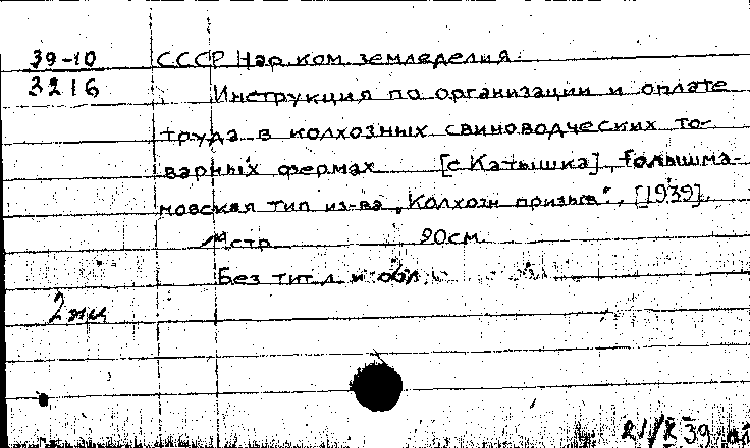 39-10
3216
СССР Нар. ком. земледелия.
Инструкция по организации и оплате
труда в колхозных свиноводческих то-
варных фермах [с Катышка], Голышма-
новская тип. из-ва "Колхозн. призыв", [1939].
20 см.
Без тит. л. и обл.
2 экз
21/X 39